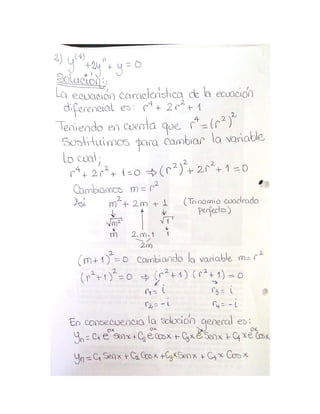 2) y⁽⁴⁾ + 2y'' + y = 0
Solución:
La ecuación característica de la ecuación
diferencial es: r⁴ + 2r² + 1
Teniendo en cuenta que r⁴ = (r²)²
Sustituimos para cambiar la variable
Lo cual;
r⁴ + 2r² + 1 = 0 ⇒ (r²)² + 2r² + 1 = 0
Cambiamos m = r²
Así m² + 2m + 1 (Trinomio cuadrado
perfecto)
√m² √1
m 2.m.1 1
2m
(m+1)² = 0 Cambiando la variable m = r²
(r²+1)² = 0 ⇒ (r²+1) (r²+1) = 0
r₁ = i r₃ = i
r₂ = -i r₄ = -i
En consecuencia la solución general es:
yₕ = C₁ e⁰ˣ Senx + C₂ e⁰ˣ Cosx + C₃ x e⁰ˣ Senx + C₄ x e⁰ˣ Cosx
yₕ = C₁ Senx + C₂ Cosx + C₃ x Senx + C₄ x Cosx